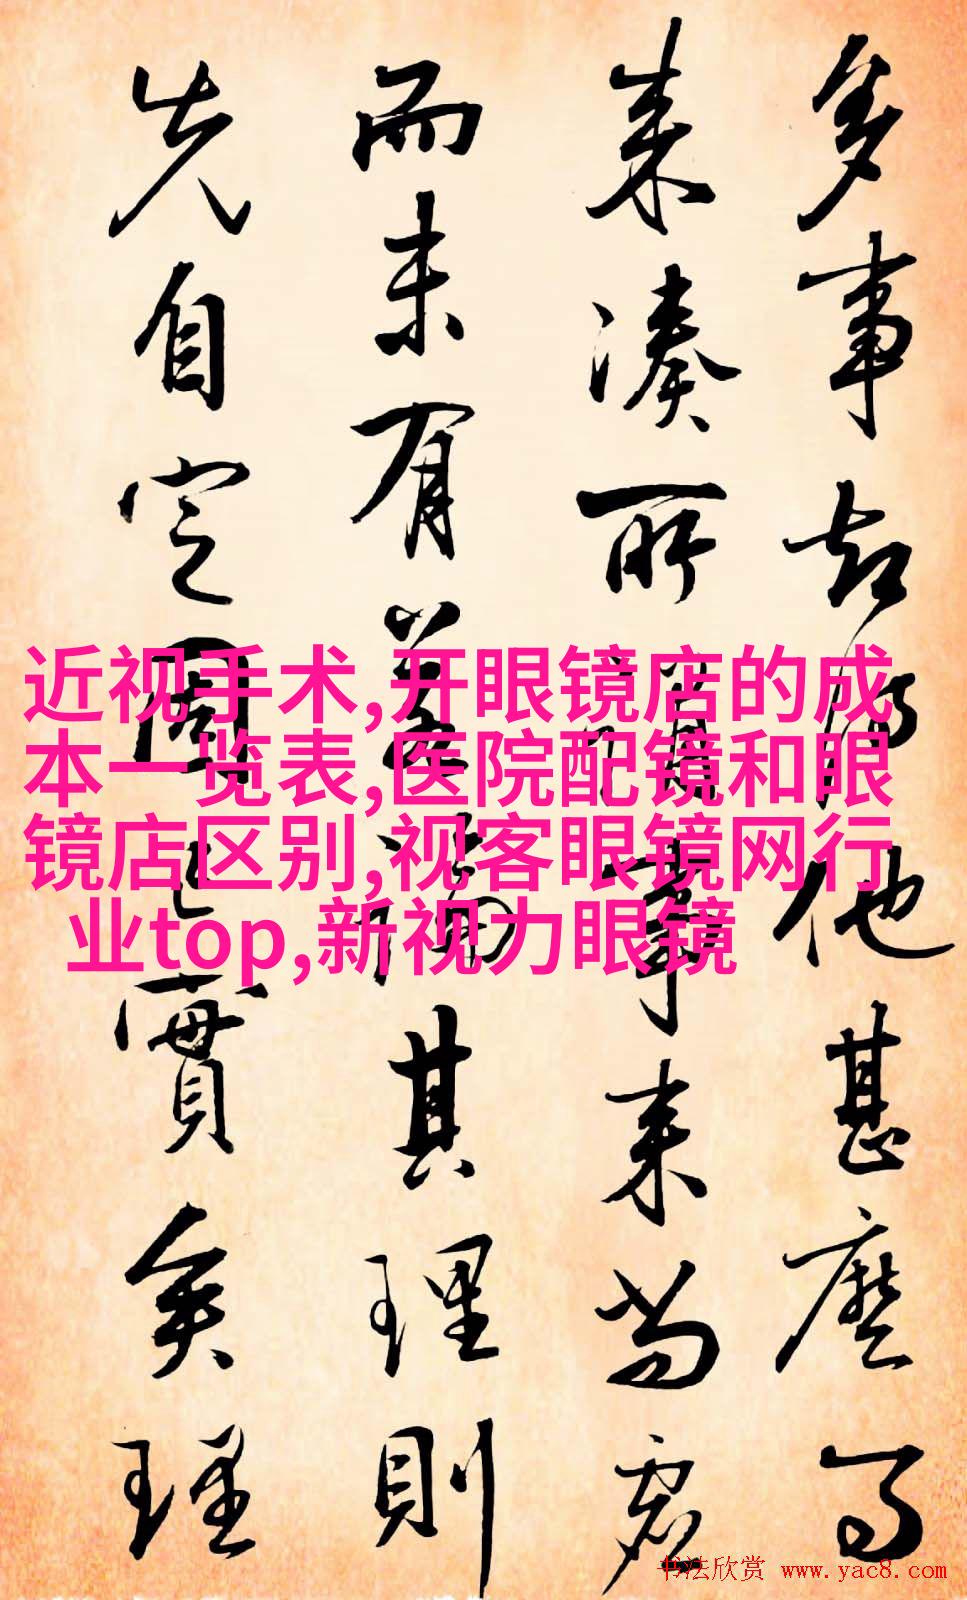 近视手术,开眼镜店的成
本一览表,医院配镜和眼
镜店区别,视客眼镜网行
业top,新视力眼镜
多事却他甚麼
来湊所謂事来尚虛
而未有若論其理則
先自定固已實矣理
书法欣赏 www.yac8.com